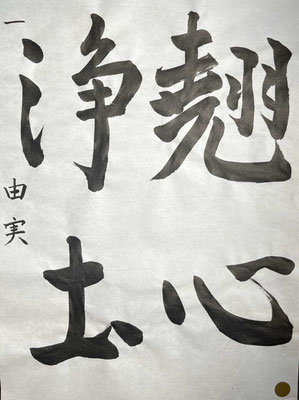 翹心
浄土
一 由実